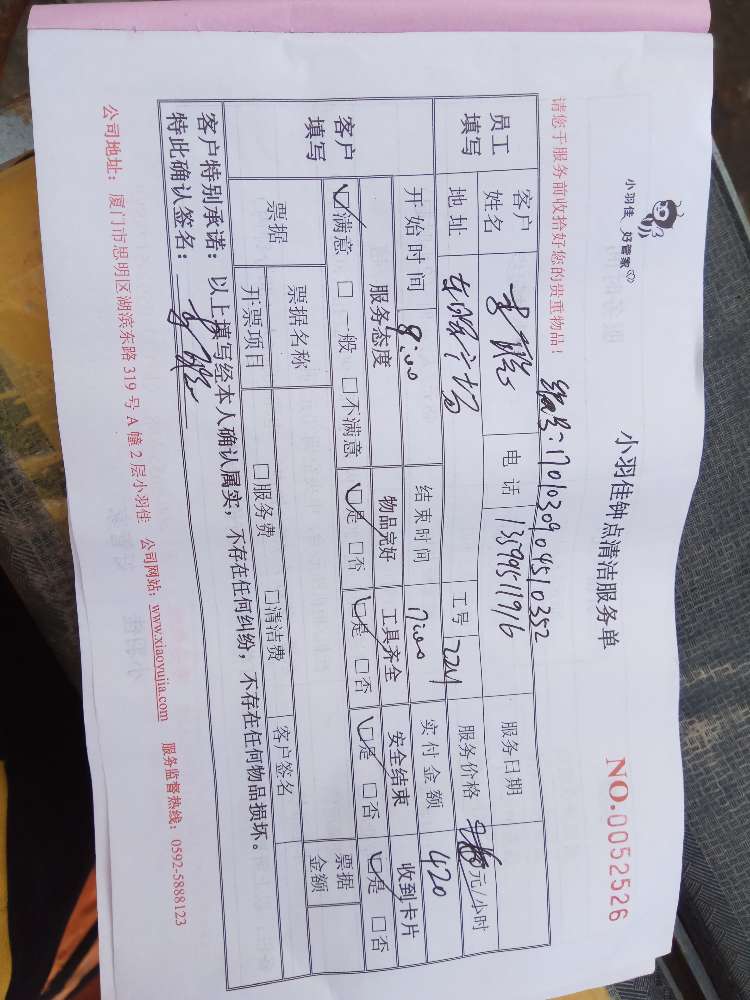 小羽佳 好管家
小羽佳钟点清洁服务单
NO.0052526
请您于服务前收拾好您的贵重物品！
编号：1701030904510352
员工填写
客户姓名 电话 13599511916 服务日期
地址 工号 2241 服务价格 元/小时
客户填写
开始时间 8:00 结束时间 17:00 实付金额 420
服务态度 物品完好 工具齐全 安全结束 收到卡片
☑满意 □一般 □不满意 ☑是 □否 ☑是 □否 ☑是 □否 ☑是 □否
票据 票据名称 客户签名 票据金额
开票项目 □服务费 □清洁费
客户特别承诺：以上填写经本人确认属实，不存在任何纠纷，不存在任何物品损坏。
特此确认签名：
公司地址：厦门市思明区湖滨东路319号A幢2层小羽佳 公司网站：www.xiaoyujia.com 服务监督热线：0592-5888123